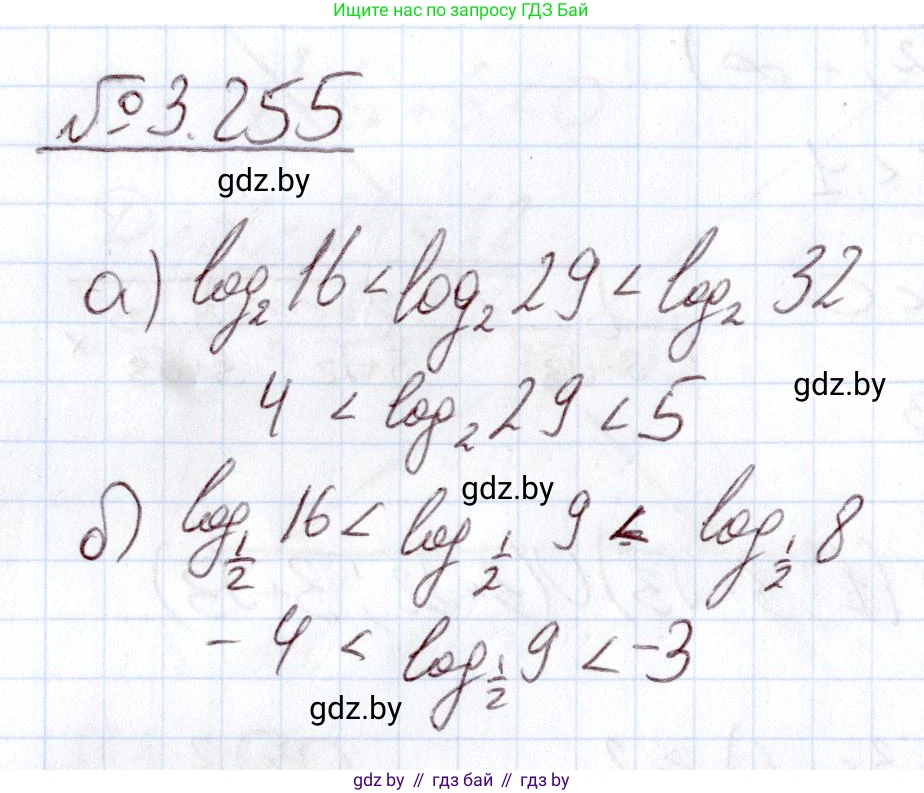 Ищите нас по запросу ГДЗ Бай
№3.255
gdz.by
а) log₂ 16 < log₂ 29 < log₂ 32
gdz.by
4 < log₂ 29 < 5
gdz.by
б) log_{1/2} 16 < log_{1/2} 9 < log_{1/2} 8
-4 < log_{1/2} 9 < -3
gdz.by
gdz.by // гдз бай // gdz.by